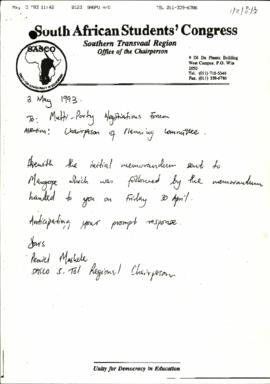 May 3 '93 11:42 0123 SASPU N/O TEL 011-339-6786
South African Students' Congress
Southern Transvaal Region
Office of the Chairperson
SASCO
West Campus, P.O. Wits
2050
Tel. (011) 716-3340
Fax. (011) 339-6786
3 May 1993.
To: Multi-Party Negotiations Forum
Attention: Chairperson of Planning Committee.
Herewith the initial memorandum sent to
Mangope which was followed by the memorandum
handed to you on Friday 30 April.
Anticipating your prompt response
Yours
SASCO S. Tvl Regional Chairperson
Unity for Democracy in Education